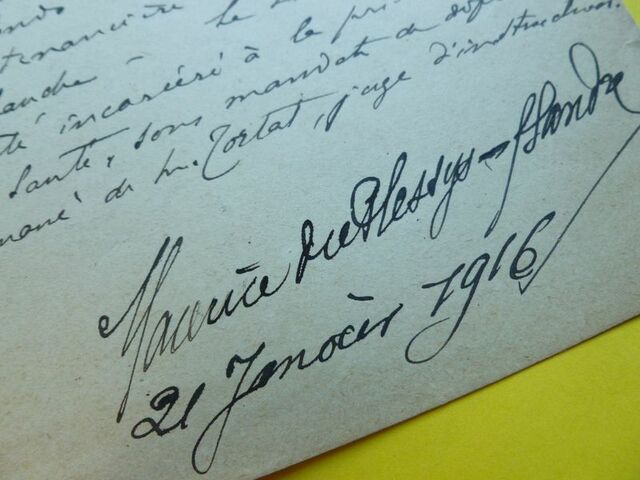 tenancière le
à la pri
té incarcéré
Santé, sous mandat de dépô
mané de m. Tortat, juge d'instruction.
Maurice du Plessys-Flandre
21 Janvier 1916